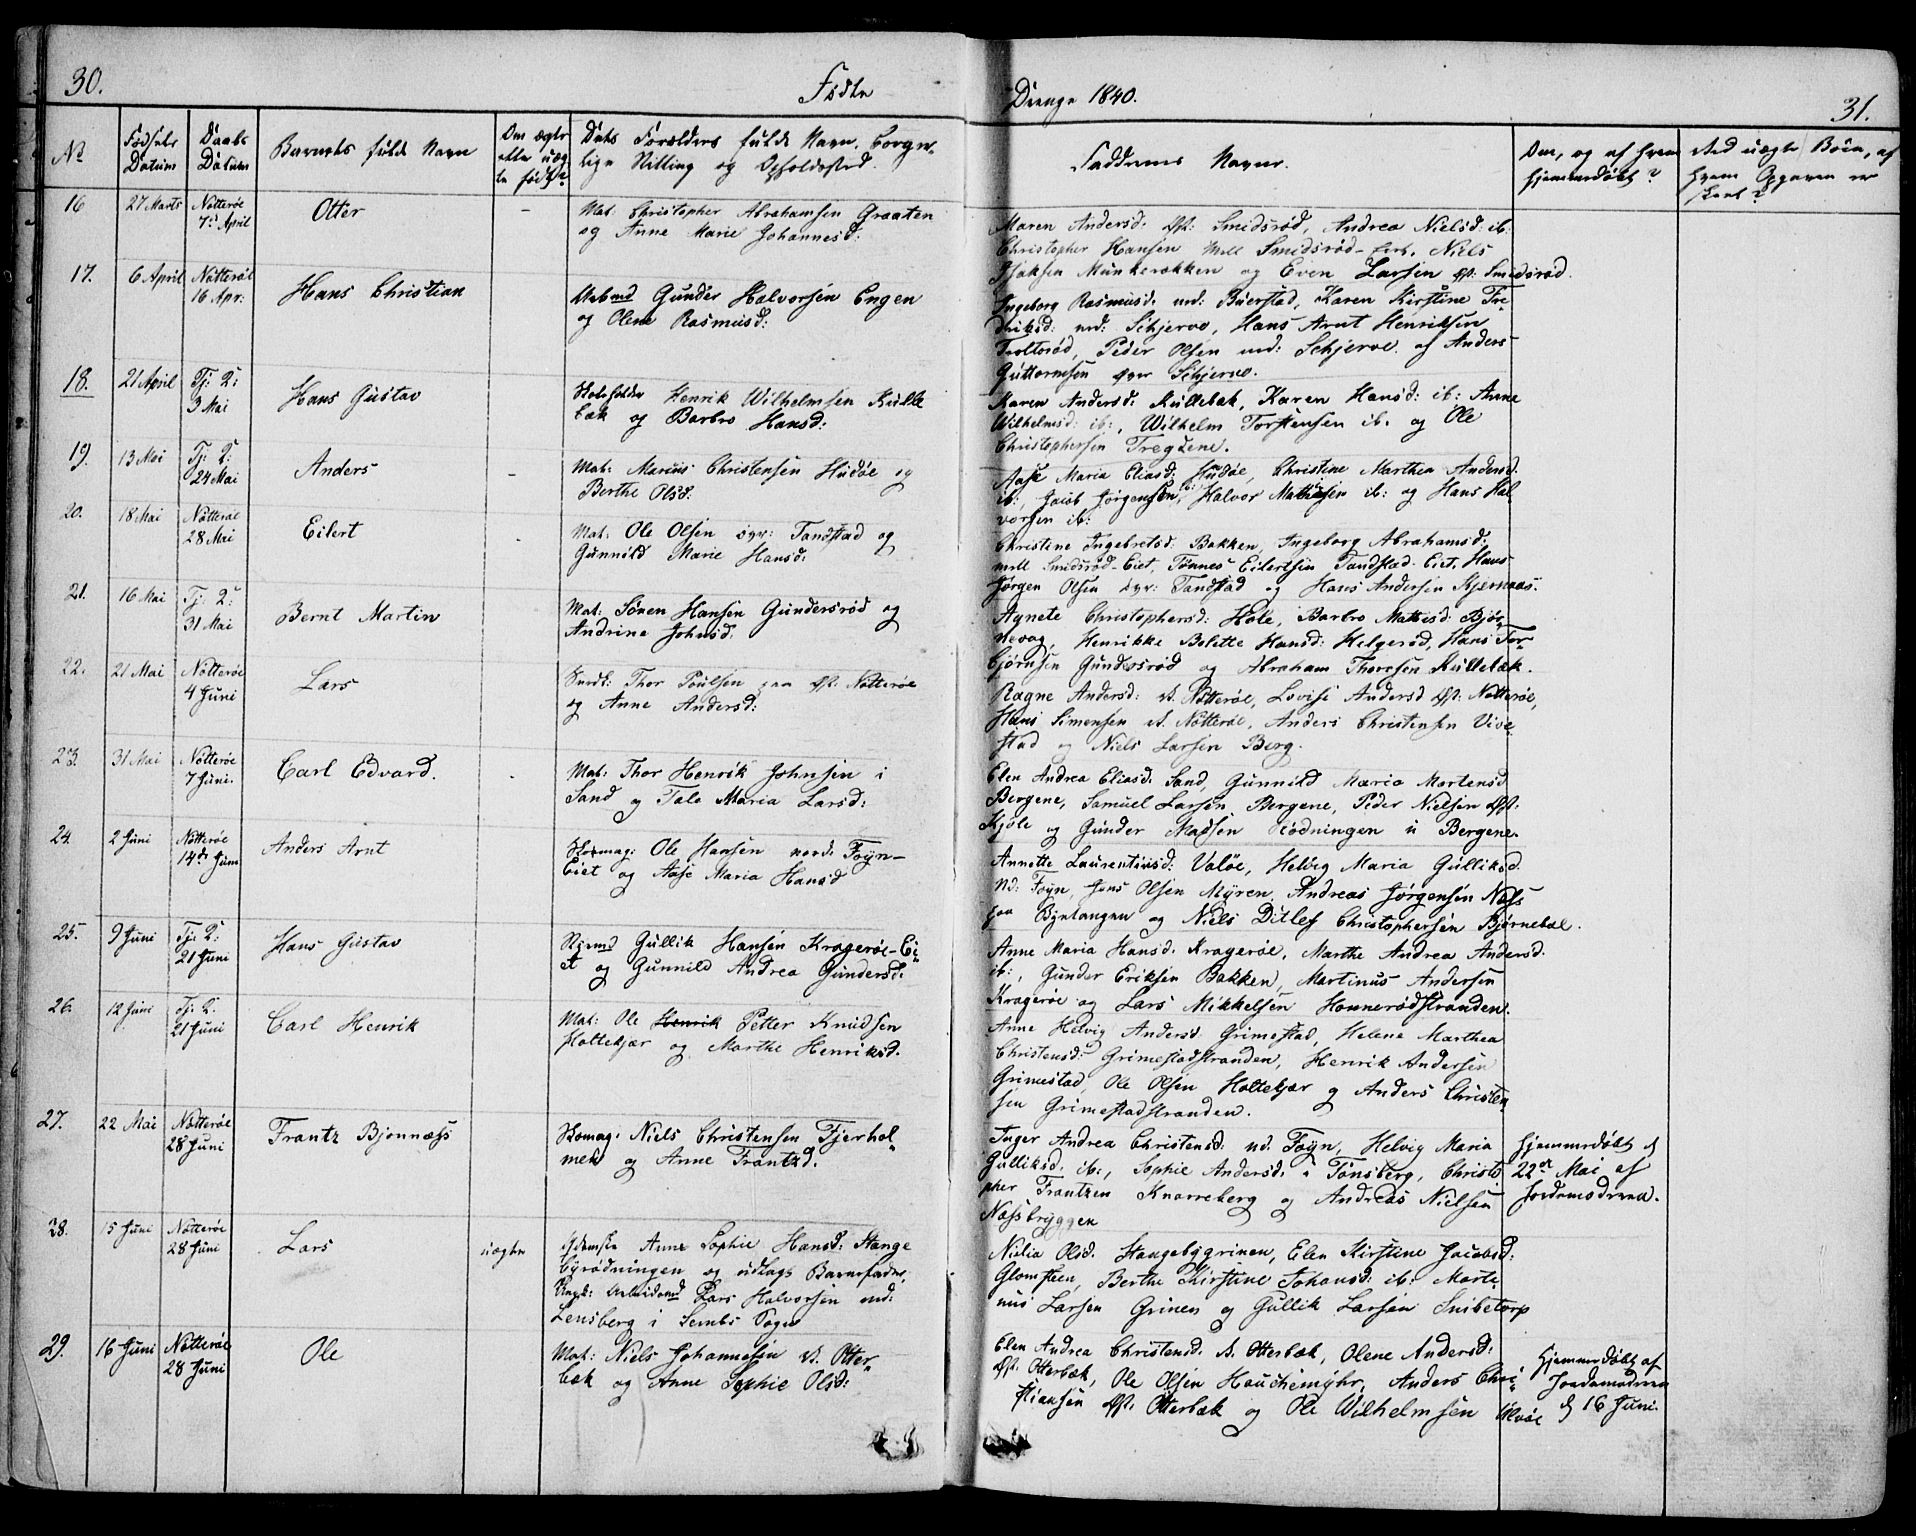 30.
Fødte
Drenge 1840.
31.
No
Fødsels Datum
Daabs Datum
Barnets fulde Navn
Om ægte eller uægte født?
Dets Forældres fulde Navn, borgerlige Stilling og Opholdssted.
Faddrenes Navne.
Om, og af hvem hjemmedøbt?
Ved uægte Børn, af hvem Opgaven er skeet?
16
27 Marts
Nøtterøe
7d April
Otter
-
Mat: Christopher Abrahamsen Graaten
og Anne Marie Johannesd:
Maren Andersd. Øst: Smidsrød, Andrea Nielsd: ib:
Christopher Hansen Mell Smidsrød, Niels
Isaksen Munkerækken og Even Larsen Øst: Smidsrød.
17.
6 April
Nøtterøe
16 Apr:
Hans Christian
Gunder Halvorsen Engen
og Olene Rasmusd:
Ingeborg Rasmusd. nd: Buerstad, Karen Kirstine Fre-
driksd: nd: Schjerve, Hans Arnt Henriksen
Peder Olsen nd: Schjerve, og Anders
Guttormsen øvr Schjerve.
18.
21 April
Tj: 2:
3 Mai
Hans Gustav
Henrik Wilhelmsen Kulle
bæk og Barbro Hansd:
Karen Andersd: Kullebæk, Karen Hansd: ib: Anne
Wilhelmsd: ib:, Wilhelm Torstensen ib. og Ole
Christophersen Tregdene.
19.
13 Mai
Tj: 2:
24 Mai
Anders
-
Mat: Marius Christensen Hudøe og
Berthe Olsd:
Aase Maria Eliasd: Hudøe, Christine Marthea Andersd.
ib: Jacob Jørgensen, ib: Halvor Mathisen ib: og Hans Hal
vorsen ib:
20.
18 Mai
Nøtterøe
28 Mai
Eilert
-
Mat: Ole Olsen øvr: Tandstad og
Gunnild Marie Hansd:
Christine Ingebretsd: Bakken, Ingeborg Abrahamsd:
mell Smidsrød-Eiet, Tønnes Eilertsen Tandstad-Eiet, Hans
Jørgen Olsen øvr: Tandstad og Hans Andersen Kjernaas.
21.
16 Mai
Tj: 2:
31 Mai
Bernt Martin
Mat: Sören Hansen Gundersrød og
Andrine Johnsd:
Agnete Christophersd: Hole, Barbro Mathisd: Bjør-
nevog, Henrikke Bolette Hansd: Helgerød, Hans Tor-
bjørnsen Gundersrød og Abraham Thoresen Kullebæk.
22.
21 Mai
Nøtterøe
4 Juni
Lars
Thor Poulsen paa Øst: Nøtterøe
og Anne Andersd:
Ragne Andersd: V. Nøtterøe, Lovise Andersd Øst: Nøtterøe,
Hans Simensen V. Nøtterøe, Anders Christensen Vive-
stad og Niels Larsen Berg.
23.
31 Mai
Nøtterøe
7 Juni.
Carl Edvard.
-
Mat: Thor Henrik Johnsen i
Sand og Tale Maria Larsd:
Elen Andrea Eliasd: Sand, Gunnild Maria Mortensd
Bergene, Samuel Larsen Bergene, Peder Nielsen Øst:
Kjøle og Gunder Madsen Rødningen u Bergene.
24.
2 Juni
Nøtterøe
14de Juni
Anders Arnt
Skomag: Ole Hansen nord: Føyn-
Eiet og Aase Maria Hansd
Annette Laurentiusd: Valøe, Helvig Maria Gulliksd:
Nd: Føyn, Jens Olsen Myren, Andreas Jørgensen Næss
paa og Niels Ditlef Christophersen Bjørnebol.
25.
9 Juni
Tj: 2:
21 Juni
Hans Gustav
Gullik Hansen Kragerøe-Ei-
et og Gunnild Andrea Gundersd:
Anne Maria Hansd. Kragerøe, Marthe Andrea Andersd.
ib:, Gunder Eriksen Bakken, Martinus Andersen
Kragerøe og Lars Mikkelsen Honnerødstranden.
26.
12 Juni
Tj: 2:
21 Juni
Carl Henrik
Mat: Ole Henrik Petter Knudsen
Holtekjær og Marthe Henriksd.
Anne Helvig Andersd Grimestad, Helene Marthea
Christensd: Grimestadstranden, Henrik Andersen
Grimestad, Ole Olsen Holtekjær og Anders Christen-
sen Grimestadstranden.
27.
22 Mai
Nøtterøe
28 Juni
Frantz Bjønnæss
Skomag: Niels Christensen Fjerhol-
men og Anne Frantzd.
Inger Andrea Christensd: nd. Føyn, Helvig Maria
Gulliksd. ib:, Sophie Andersd: i Tønsberg, Christo
pher Frantzen Knarreberg og Andreas Nielsen
Næssbryggen
Hjemmedøbt d
22de Mai af
Jordemoderen.
28.
15 Juni
Nøtterøe
28 Juni
Lars
uægte
Anne Sophie Hansd: Stange
byrødningen og udlagt Barnefader,
Ungk: Arbeidsmd Lars Halvorsen nd:
Lensberg i Sembs Sogn
Nilia Olsd. Stangebygrinen, Elen Kirstine Jacobsd:
Glomsteen, Berthe Kirstine Johansd: ib: Marti-
nus Larsen Grinen og Gullik Larsen Snibetorp
29.
16 Juni
Nøtterøe
28 Juni
Ole
Mat: Niels Johannesen V. Otter-
bæk og Anne Sophie Olsd:
Elen Andrea Christensd: V. Otterbæk, Olene Andersd:
Øst. Otterbæk, Ole Olsen Houchemyhr, Anders Chri-
stiansen Øst. Otterbæk og Ole Wilhelmsen Ulvøe
Hjemmedøbt af
Jordemoderen
d 16 Juni.